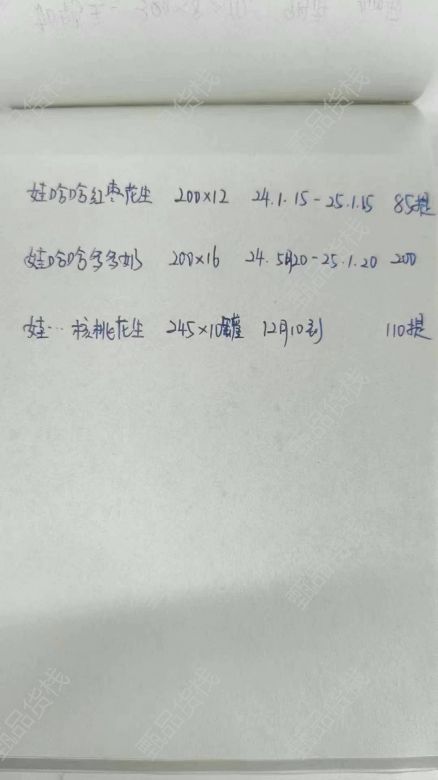 娃哈哈红枣花生 200×12 24.1.15-25.1.15 85提
娃哈哈多多奶 200×16 24.5月20-25.1.20 200
娃… 核桃花生 245×10罐 12月10到 110提
甄品货栈
甄品货栈
甄品货栈
甄品货栈
甄品货栈
甄品货栈
甄品货栈
甄品货栈
甄品货栈